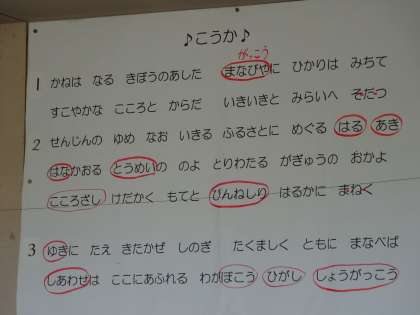 ♪こうか♪
がっこう
1 かねは なる きぼうのあした まなびやに ひかりは みちて
すこやかな こころと からだ いきいきと みらいへ そだつ
2 せんじんの ゆめ なお いきる ふるさとに めぐる はる あき
はなかおる とうめいの のよ とりわたる がぎゅうの おかよ
こころざし けだかく もてと びんねしり はるかに まねく
3 ゆきに たえ きたかぜ しのぎ たくましく ともに まなべば
しあわせは ここにあふれる わがぼこう ひがし しょうがっこう